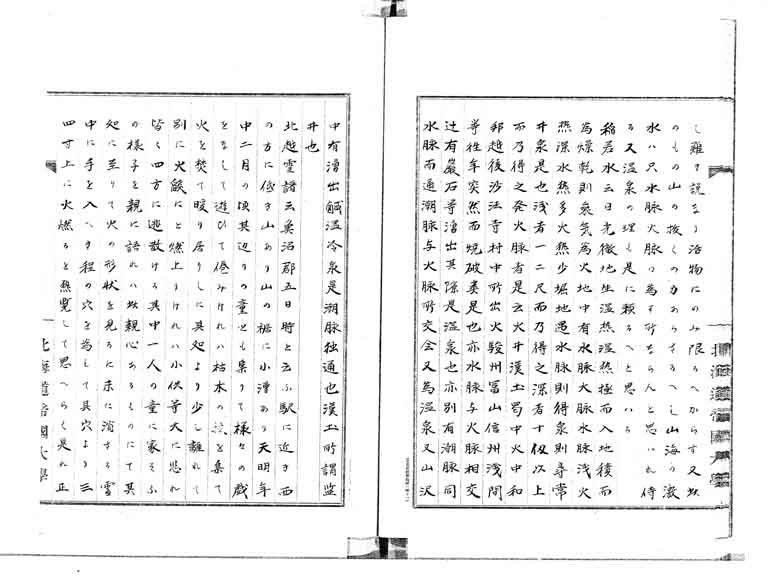 し難て説なり活物にのみ限るへからす又此
のもの山の抜くの力あらさるへし山海の激
水ハ只水脉火脉の為す所ならんと思ハれ侍
る又温泉の理も是に類るへと思ハる
稲若水云日光徹地生温热温热極而入地積而
為燥乾則氣為火地中有水脉火脉水脉浅火
热深水热多火热少堀地遇水脉則得泉則尋常
井泉是也浅者一二尺而乃得之深者十仭以上
而乃得之発火脉者是云火井漢土蜀中火中和
邦越後沙法寺村中所出火駿州冨山信州浅間
等徃年突然而焼破娄是也亦水脉与火脉相交
辻有嚴石等湧出其隙是温泉也亦别有潮脉同
水脉而通潮脉与火脉所交会又為温泉又山沢
中有湧出鹹温冷泉是潮脉独通也漢土所謂塩
井也
北越雪譜云奠沼郡五日時と云ふ駅に近き西
の方に低き山あり山の裾に小溜あり天明年
中二月の頃其辺りの童とも集りて様々の戯
をなして遊ひて倦みけれハ枯木の 枝を集て
火を焚て暖り居りしに其処より少し離れて
别に火燄にと燃上りけれハ小供等大に恐れ
皆々四方に逃散ける其中一人の童に家そふ
の様子を親に語れハ此親心あるものにて其
処に至りて火の形状を見るに未に消さる雪
中に手を入へき程の穴を為して其穴より三
四寸上に火燃ると熟覧して思へらく是れ正
北海道帝國大學
北海道帝國大學